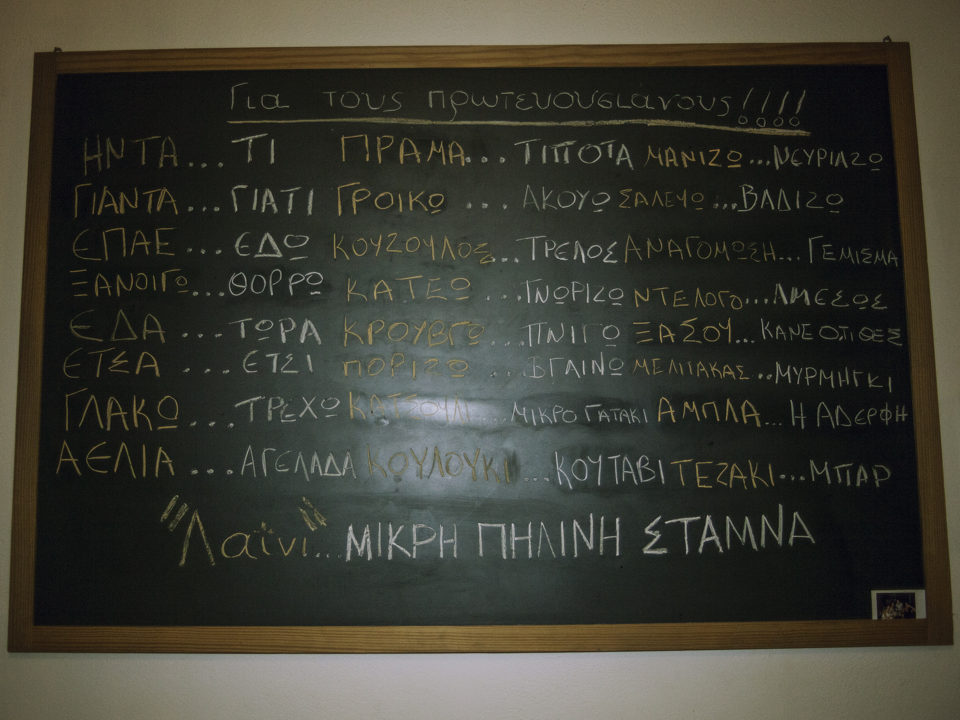 Για τους πρωτευουσιανους!!!!
ΗΝΤΑ...ΤΙ ΠΡΑΜΑ... ΤΙΠΟΤΑ ΜΑΝΙΖΩ...ΝΕΥΡΙΑΖΩ
ΓΙΑΝΤΑ...ΓΙΑΤΙ ΓΡΟΙΚΩ ... ΑΚΟΥΩ ΣΑΛΕΥΩ...ΒΑΔΙΖΩ
ΕΠΑΕ...ΕΔΩ ΚΟΥΖΟΥΛΟΣ...ΤΡΕΛΟΣ ΑΝΑΓΟΜΩΣΗ...ΓΕΜΙΣΜΑ
ΞΑΝΟΙΓΩ...ΘΟΡΡΩ ΚΑΤΕΩ ...ΓΝΩΡΙΖΩ ΝΤΕΛΟΓΩ...ΑΜΕΣΩΣ
ΕΔΑ ...ΤΩΡΑ ΚΡΟΥΒΓΩ...ΠΝΙΓΩ ΞΑΣΟΥ...ΚΑΝΕ ΟΤΙ ΘΕΣ
ΕΤΣΑ ...ΕΤΣΙ ΠΟΡΙΖΩ ...ΒΓΑΙΝΩ ΜΕΛΙΤΑΚΑΣ..ΜΥΡΜΗΓΚΙ
ΓΛΑΚΩ ...ΤΡΕΧΩ ΚΑΤΣΟΥΛΙ ...ΜΙΚΡΟ ΓΑΤΑΚΙ ΑΜΠΛΑ...Η ΑΔΕΡΦΗ
ΑΕΛΙΑ ...ΑΓΕΛΑΔΑ ΚΟΥΛΟΥΚΙ ...ΚΟΥΤΑΒΙ ΤΕΖΑΚΙ...ΜΠΑΡ
"Λαϊνι"...ΜΙΚΡΗ ΠΗΛΙΝΗ ΣΤΑΜΝΑ